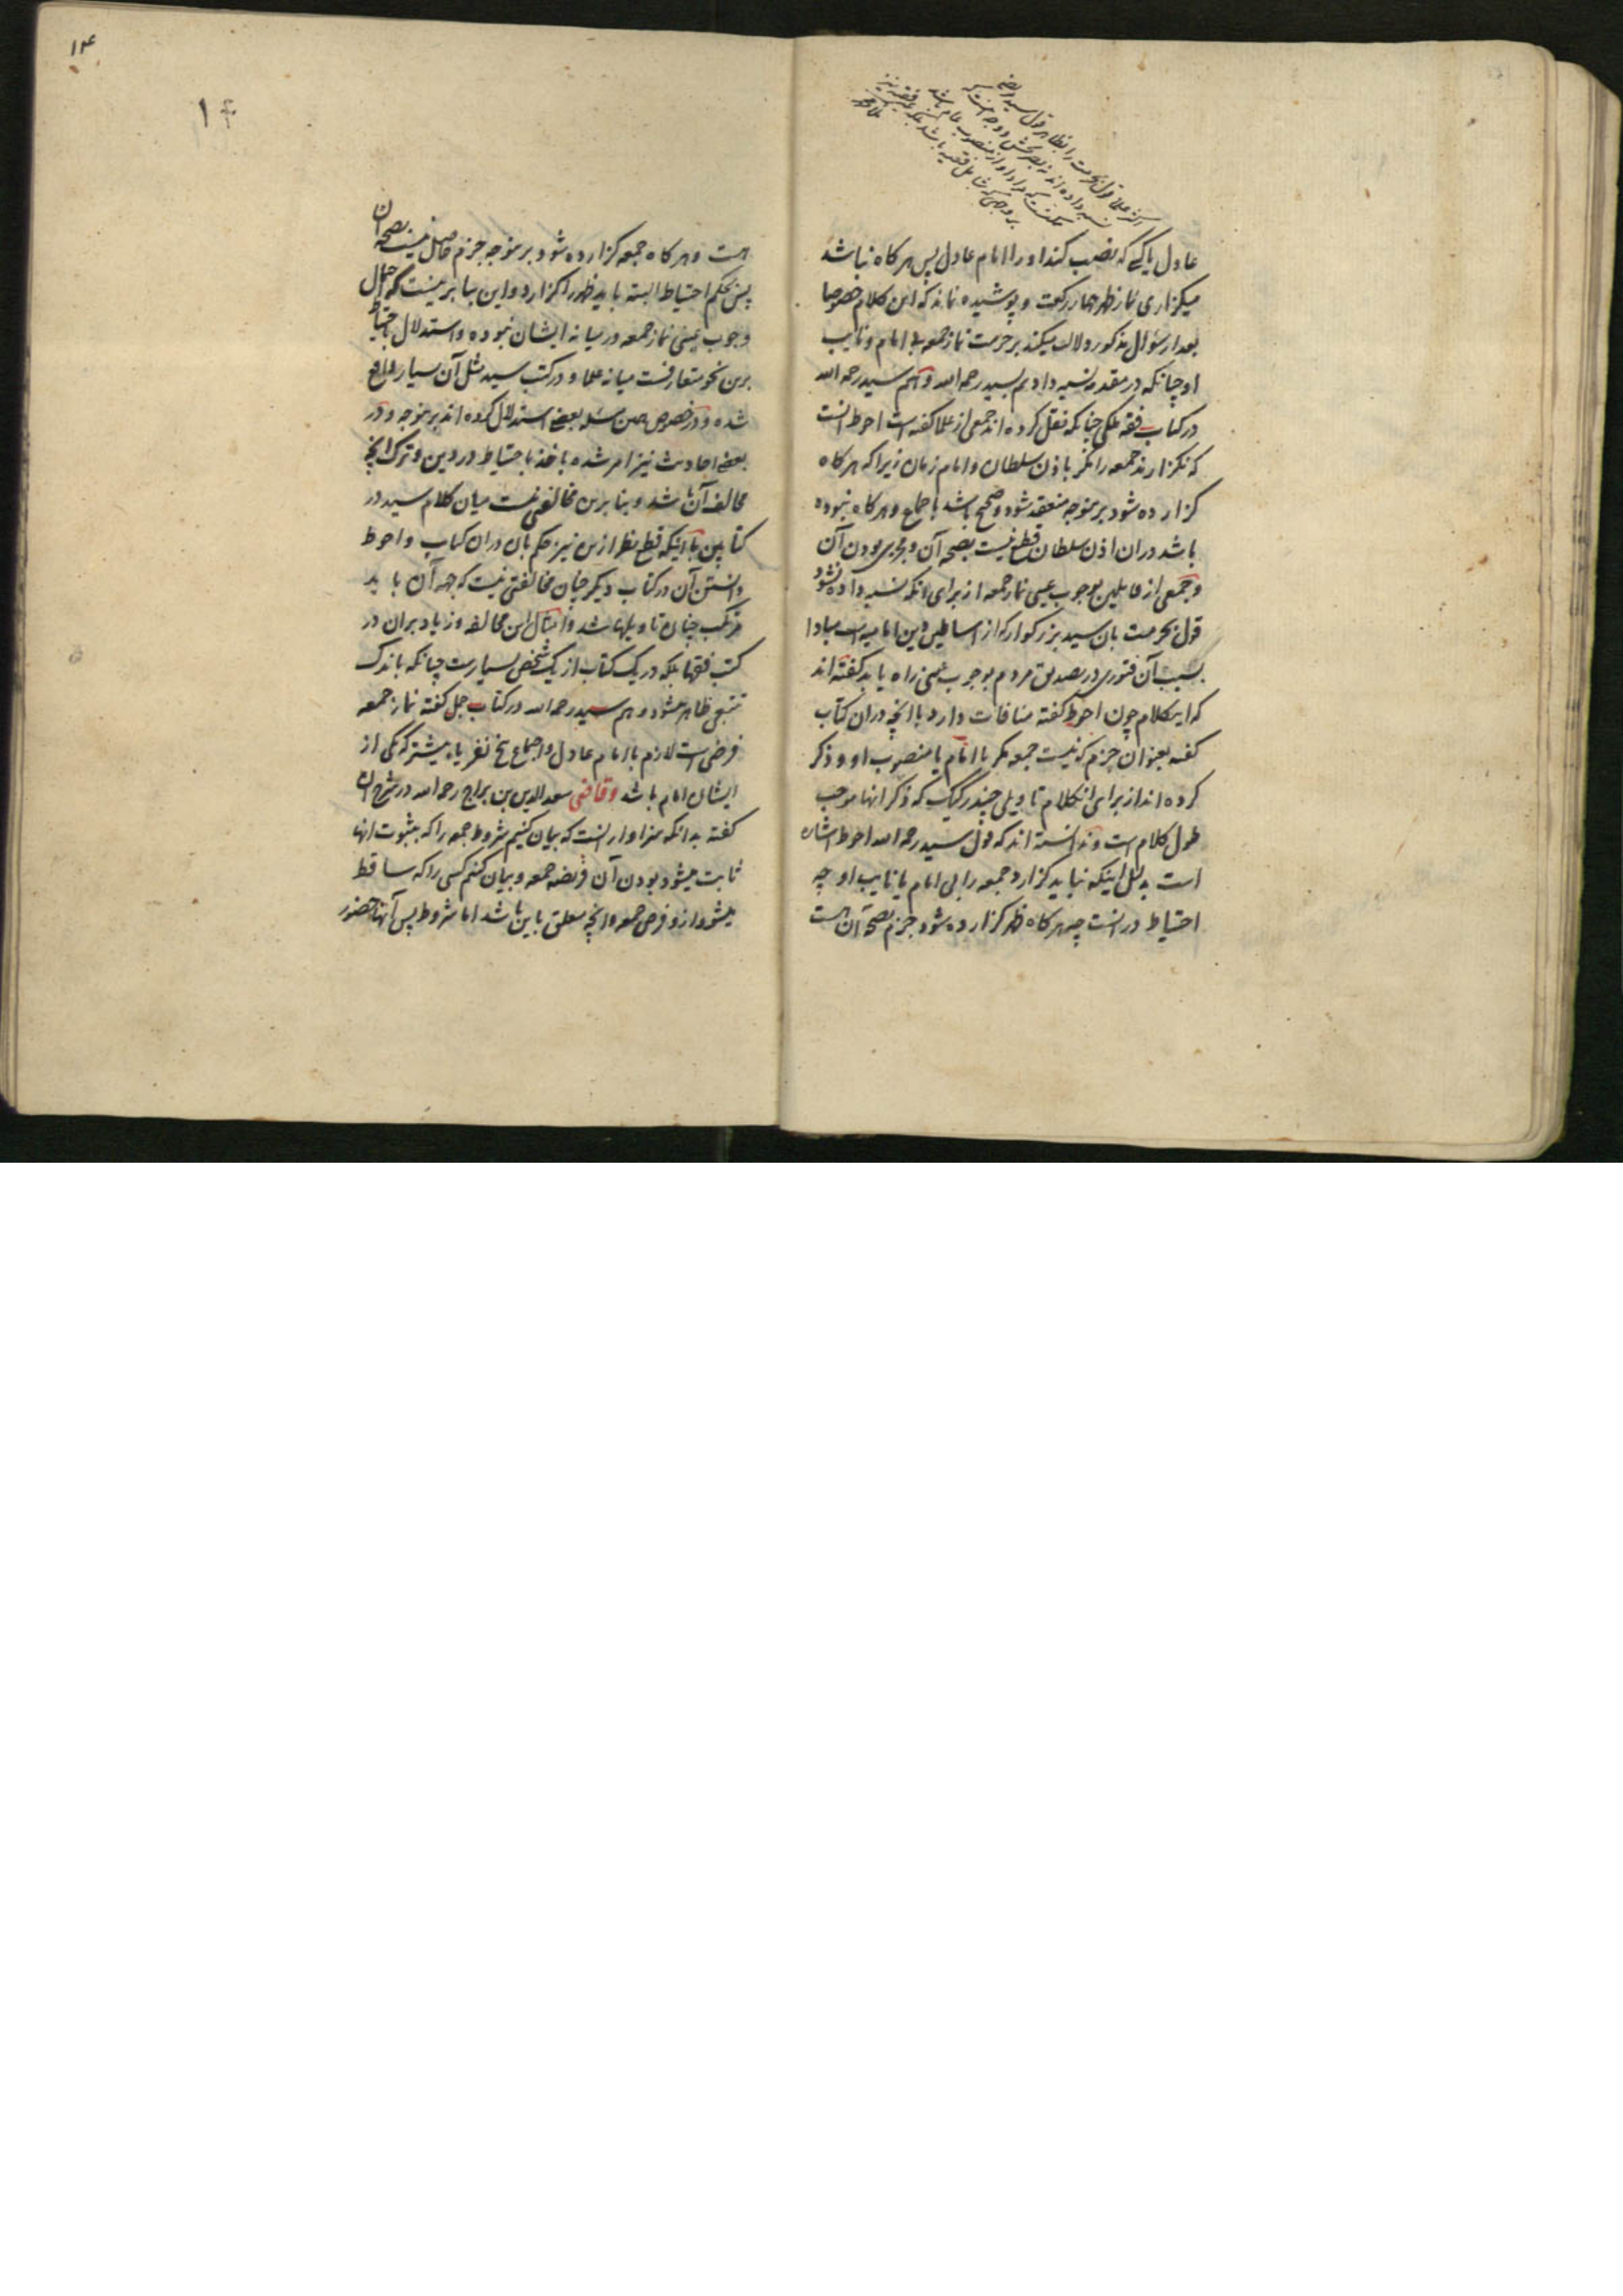 عادل یا کسی که نصب کند او را امام عادل پس هرگاه نباشد
میگزاری نماز ظهر چهار رکعت و پوشیده نماند که این کلام خصوصا
بعد از سئوال مذکور دلالت میکند بر حرمت نماز جمعه بی امام و نایب
او چنانکه در مقدمه نسبت دادیم بسید رحمه الله و هم سید رحمه الله
در کتاب فقه ملکی چنانکه نقل کرده اند جمعی از علما گفته است احوط آنست
که نگزارند جمعه را مگر باذن سلطان و امام زمان زیرا که هرگاه
گزارده شود برینوجه منعقد شود و صحیح باشد باجماع و هرگاه نبوده
باشد دران اذن سلطان قطع نیست بصحة آن و مجزی بودن آن
و جمعی از قایلین بوجوب عینی نماز جمعه از برای آنکه نسبت داده نشود
قول بحرمت بان سید بزرگوار که از اساطین دین امامیه است مبادا
بسبب آن فتوری در تصدیق مردم بوجوب عینی راه یابد گفته اند
که اینکلام چون احوط گفته منافات دارد با آنچه دران کتاب
گفته بعنوان جزم که نیست جمعه مگر با امام یا منصوب او و ذکر
کرده اند از برای انکلام تاویلی چند رکیک که ذکر انها موجب
طول کلام است و ندانسته اند که قول سید رحمه الله احوط اشاره
است بدلیل اینکه نباید گزارد جمعه را بی امام یا نایب او چه
احتیاط در انست چه هرگاه ظهر گزارده شود جزم بصحة آن هست
۱۴
۱۴
هست و هرگاه جمعه گزارده شود برینوجه جزم حاصل نیست بصحة آن
پس بحکم احتیاط البته باید ظهر را گزارد و این بنا برینست که احتمال
وجوب عینی نماز جمعه در میانه ایشان نبوده و استدلال باحتیاط
برین نحو متعارفست میانه علما و در کتب سید مثل آن بسیار واقع
شده و در خصوص همین مسئله بعضی استدلال کرده اند برینوجه و در
بعضی احادیث نیز امر شده باخذ باحتیاط در دین و ترک آنچه
مخالف آن باشد و بنا برین مخالفتی نیست میان کلام سید در
کتابین با آینکه قطع نظر ازین نیز حکم بان دران کتاب و احوط
دانستن آن در کتاب دیگر چنان مخالفتی نیست که بجهة آن باید
مرتکب چنان تاویلها شد و امثال این مخالفه و زیاد بران در
کتب فقها بلکه در یک کتاب از یک شخص بسیارست چنانکه باندک
تتبعی ظاهر میشود و هم سید رحمه الله در کتاب جمل گفته نماز جمعه
فرضی است لازم با امام عادل و اجتماع پنج نفر یا بیشتر که یکی از
ایشان امام باشد و قاضی سعد الدین بن براج رحمه الله در شرح آن
گفته بدانکه سزاوار انست که بیان کنیم شروط جمعه را که بثبوت انها
ثابت میشود بودن آن فریضه جمعه و بیان کنیم کسی را که ساقط
میشود ازو فرض جمعه و آنچه متعلق باین باشد اما شروط پس آنها حضور